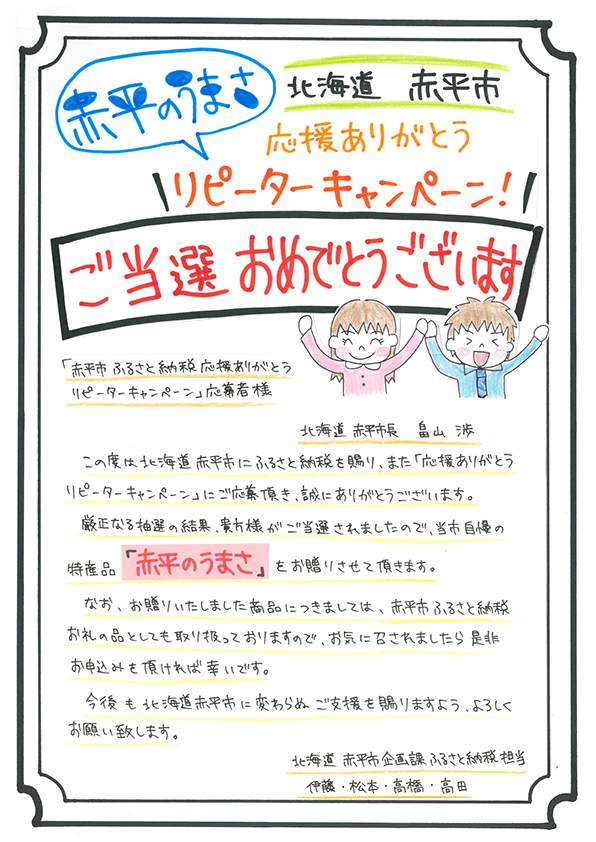 赤平のうまさ
北海道 赤平市
応援ありがとう
リピーターキャンペーン!
ご当選 おめでとうございます
「赤平市 ふるさと納税 応援ありがとう
リピーターキャンペーン」応募者様
北海道 赤平市長 畠山 渉
この度は北海道赤平市にふるさと納税を賜り、また「応援ありがとう
リピーターキャンペーン」にご応募頂き、誠にありがとうございます。
厳正なる抽選の結果、貴方様がご当選されましたので、当市自慢の
特産品『赤平のうまさ』をお贈りさせて頂きます。
なお、お贈りいたしました商品につきましては、赤平市ふるさと納税
お礼の品としても取り扱っておりますので、お気に召されましたら是非
お申込みを頂ければ幸いです。
今後も北海道赤平市に変わらぬご支援を賜りますよう、よろしく
お願い致します。
北海道 赤平市企画課ふるさと納税担当
伊藤・松本・高橋・高田